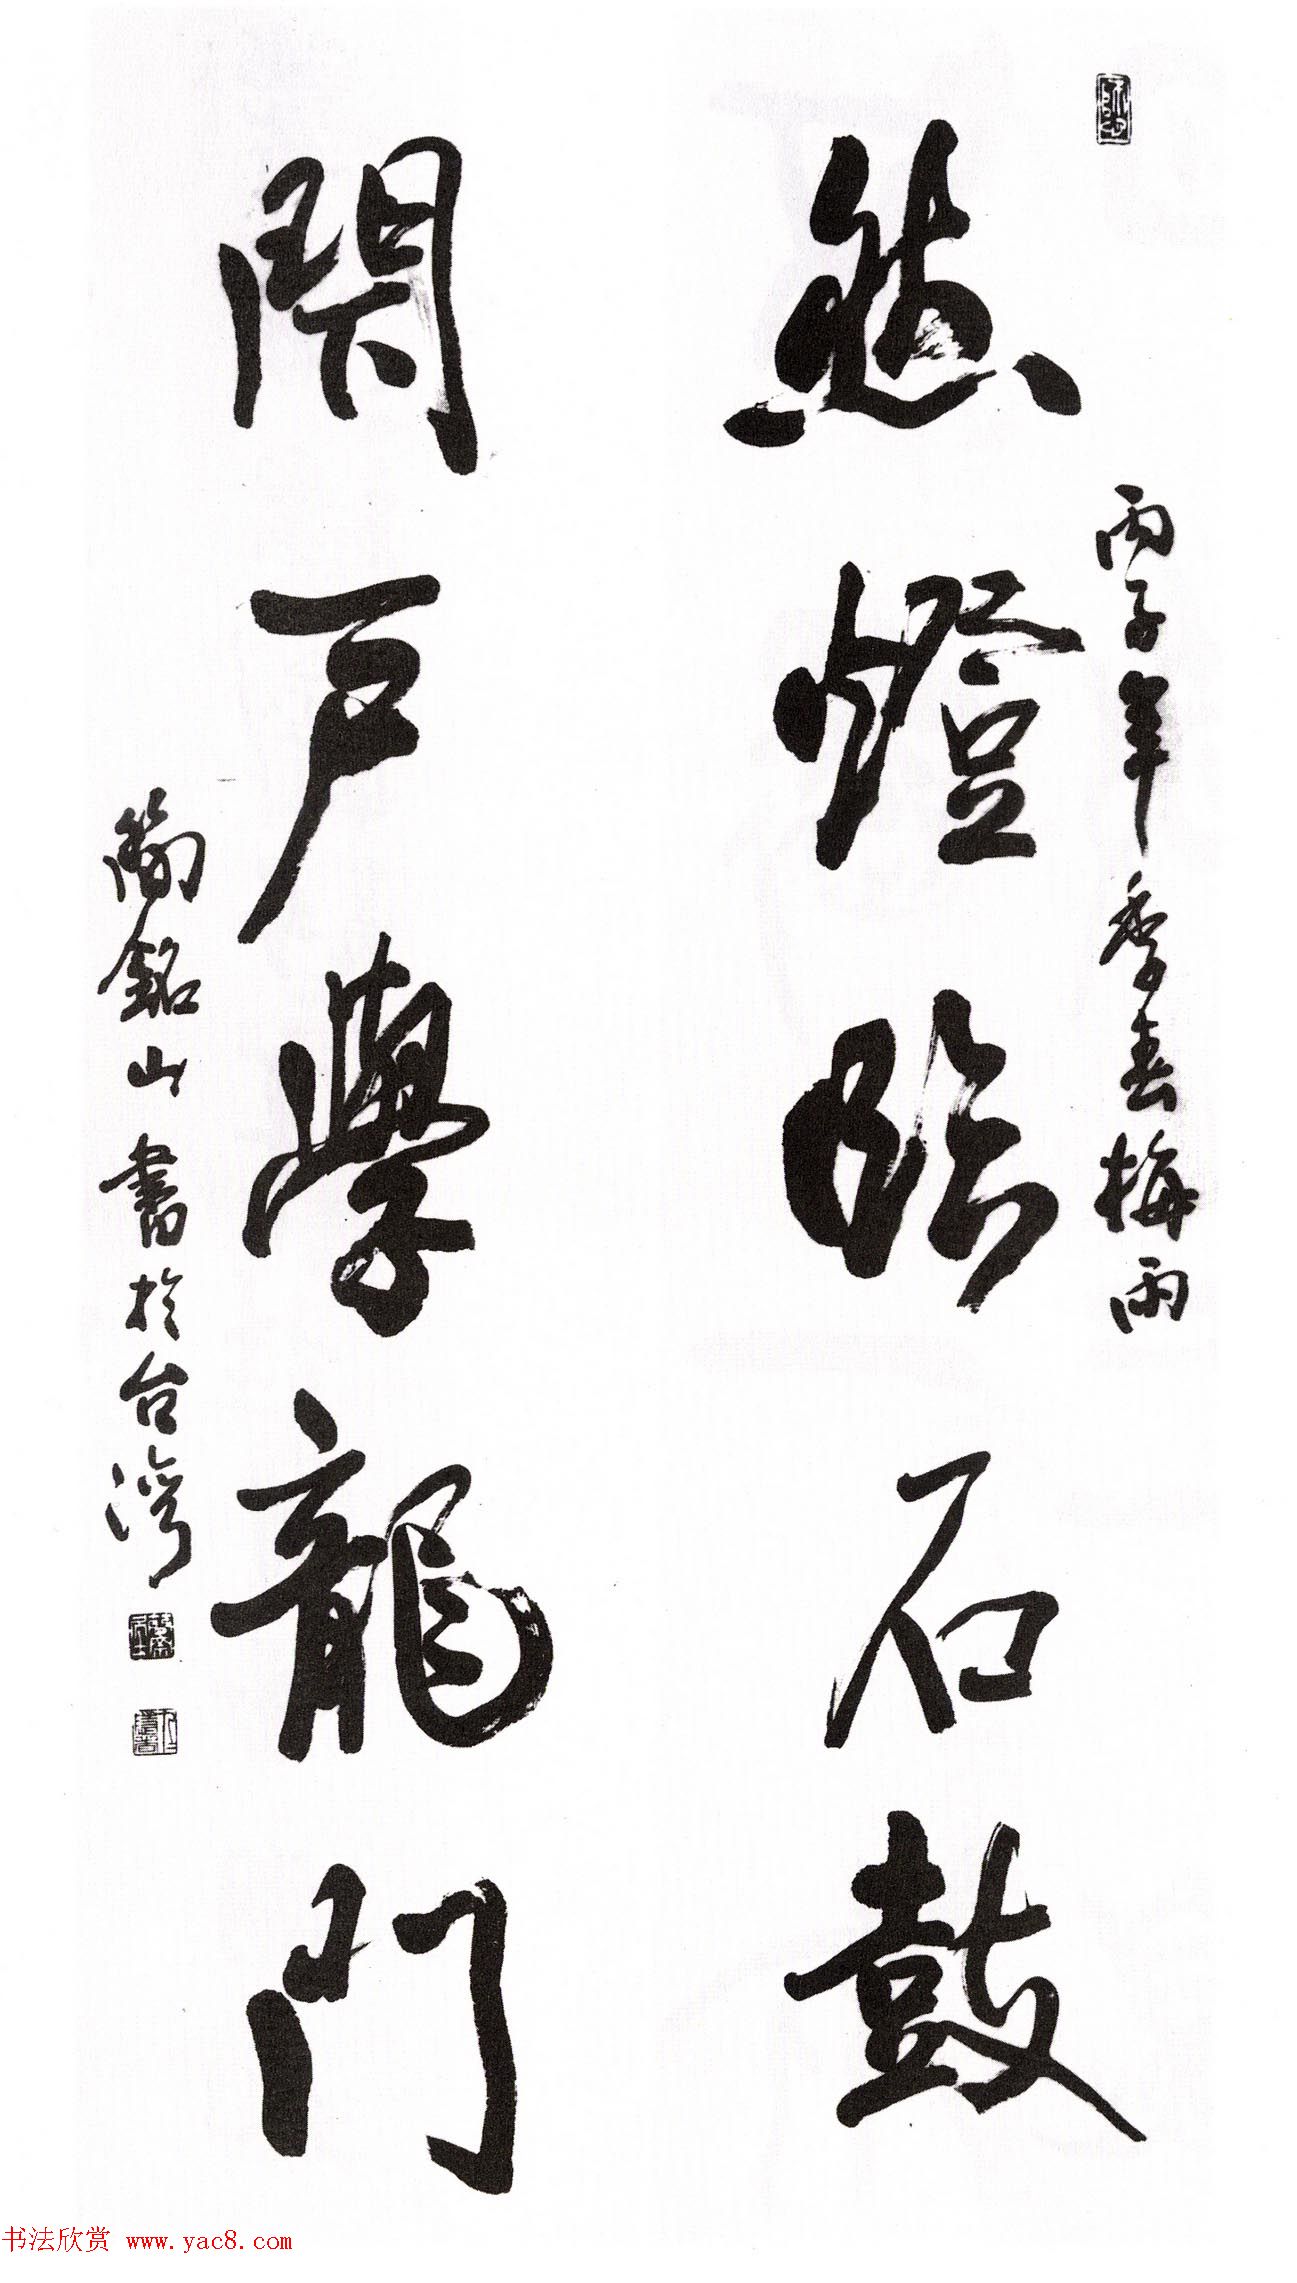 丙子年季春梅雨
然燈臨石鼓
閉戶學龍門
簡銘山書於台灣
书法欣赏 www.yac8.com